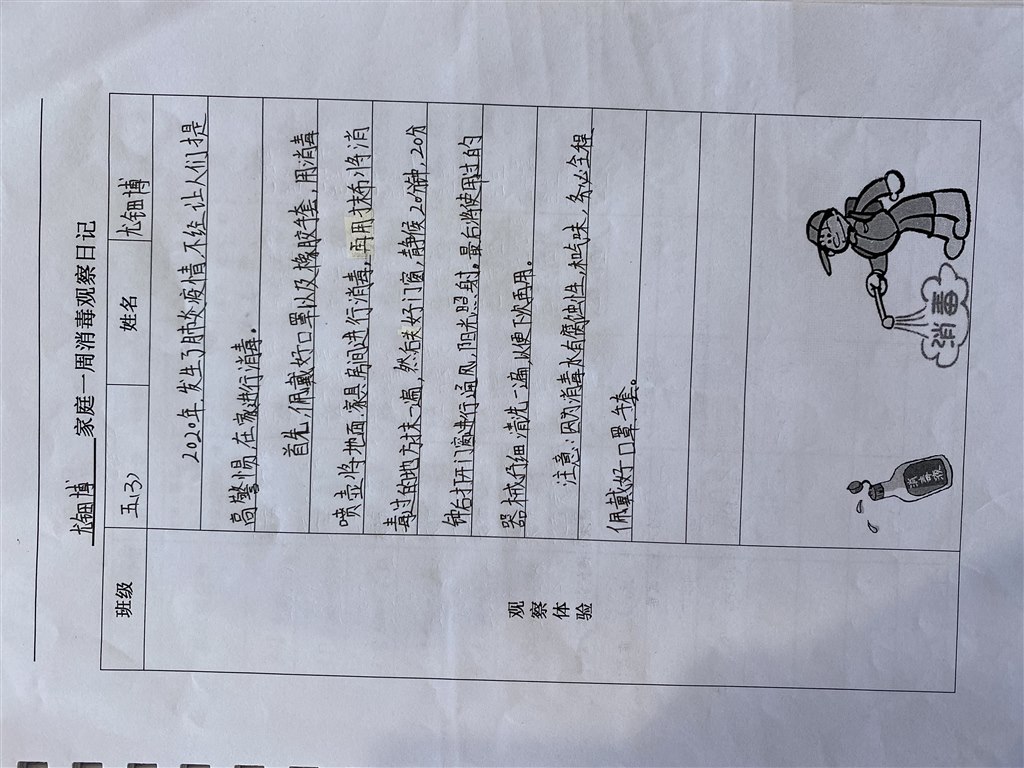 尤钿博 家庭一周消毒观察日记
班级 五(3) 姓名 尤钿博
观察体验
2020年,发生了肺炎疫情,不经让人们提
高警惕,在家进行消毒。
首先,佩戴好口罩以及橡胶手套,用消毒
喷壶将地面家具房间进行消毒,再用抹布将消
毒过的地方抹一遍,然后关好门窗,静候20分钟,20分
钟后打开门窗进行通风,阳光照射。最后将使用过的
器械仔细清洗一遍,以便下次再用。
注意:因为消毒水有腐蚀性,和气味,务必全程
佩戴好口罩手套。
消毒液
消毒